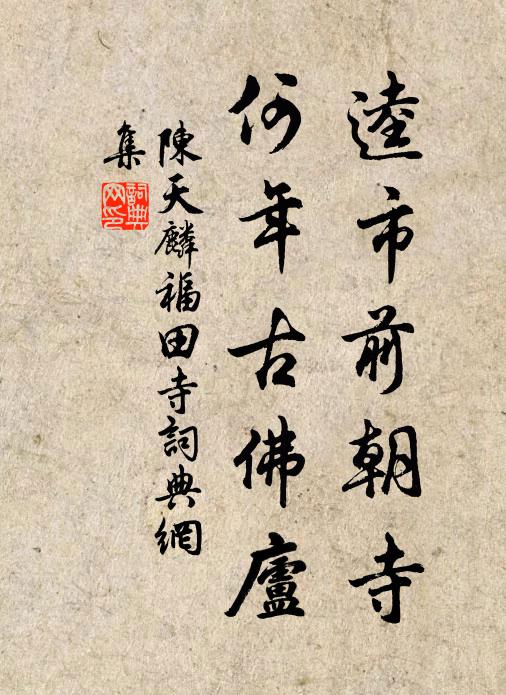 逵市前朝寺
何年古佛廬
陳天麟福田寺詞典網
集
詞典
网印